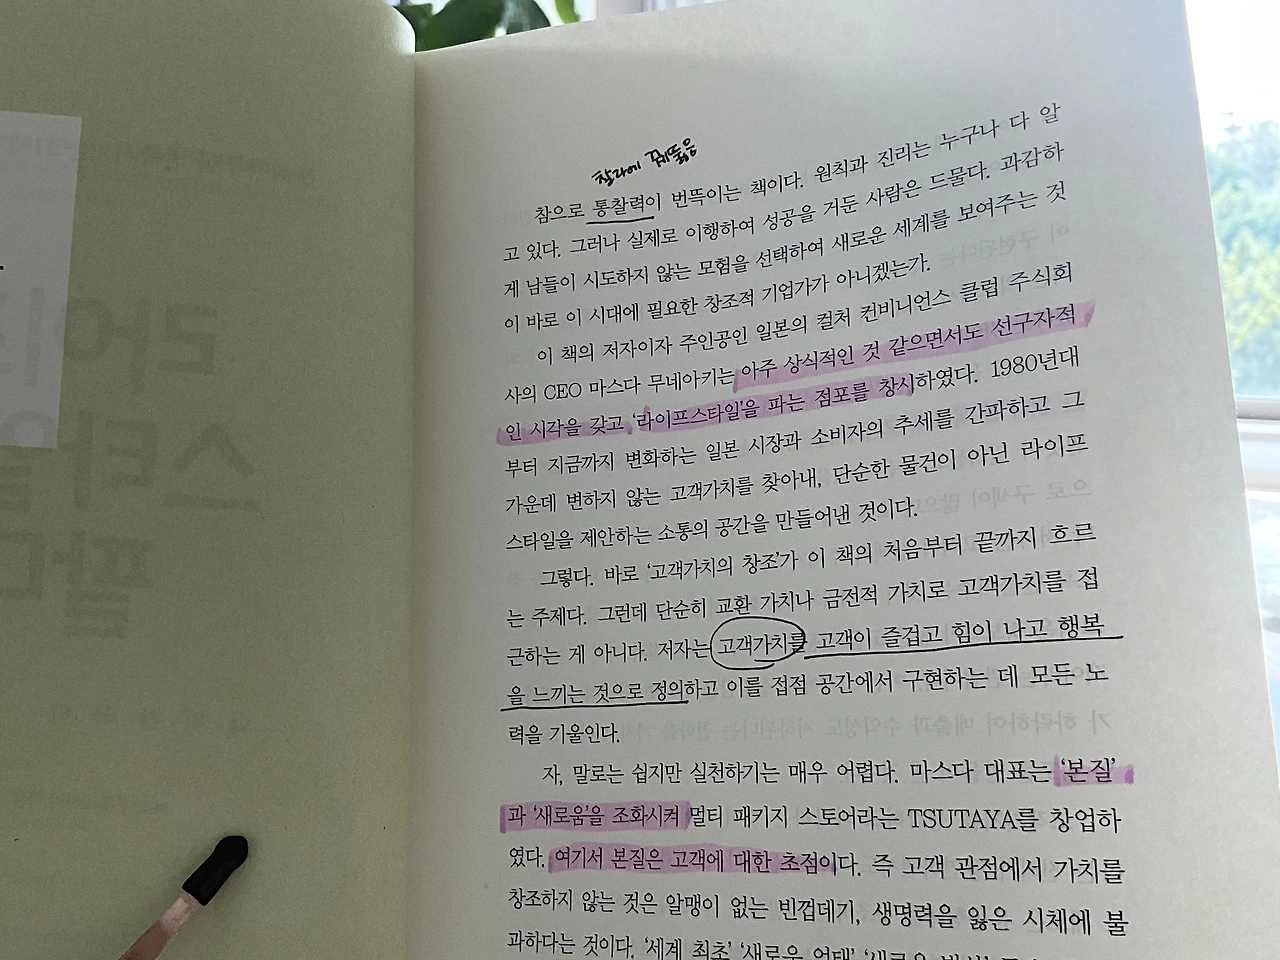 찰라에 꿰뚫음
참으로 통찰력이 번뜩이는 책이다. 원칙과 진리는 누구나 다 알
고 있다. 그러나 실제로 이행하여 성공을 거둔 사람은 드물다. 과감하
게 남들이 시도하지 않는 모험을 선택하여 새로운 세계를 보여주는 것
이 바로 이 시대에 필요한 창조적 기업가가 아니겠는가.
이 책의 저자이자 주인공인 일본의 컬처 컨비니언스 클럽 주식회
사의 CEO 마스다 무네아키는 아주 상식적인 것 같으면서도 선구자적
인 시각을 갖고, '라이프스타일'을 파는 점포를 창시하였다. 1980년대
부터 지금까지 변화하는 일본 시장과 소비자의 추세를 간파하고 그
가운데 변하지 않는 고객가치를 찾아내, 단순한 물건이 아닌 라이프
스타일을 제안하는 소통의 공간을 만들어낸 것이다.
그렇다. 바로 '고객가치의 창조'가 이 책의 처음부터 끝까지 흐르
는 주제다. 그런데 단순히 교환 가치나 금전적 가치로 고객가치를 접
근하는 게 아니다. 저자는 고객가치를 고객이 즐겁고 힘이 나고 행복
을 느끼는 것으로 정의하고 이를 접점 공간에서 구현하는 데 모든 노
력을 기울인다.
자, 말로는 쉽지만 실천하기는 매우 어렵다. 마스다 대표는 '본질'
과 '새로움'을 조화시켜 멀티 패키지 스토어라는 TSUTAYA를 창업하
였다. 여기서 본질은 고객에 대한 초점이다. 즉 고객 관점에서 가치를
창조하지 않는 것은 알맹이 없는 빈껍데기, 생명력을 잃은 시체에 불
과하다는 것이다. '세계 최초' '새로운 업태' '새로운